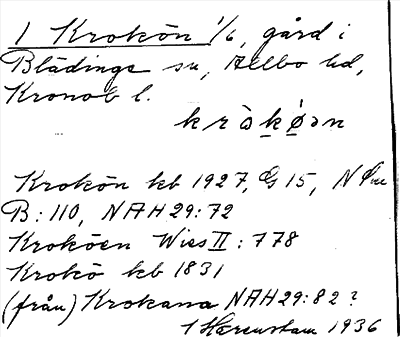 1 Krokön 1/6, gård i
Blädinge sn, Allbo hd,
Kronob l.
kràkø̀ən
Krokön kb 1927, G 15, N
B: 110, NAH 29: 72
Kroköen Wies II: 778
Krokö kb 1831
(från) Krokana NAH 29: 82 ?
1936